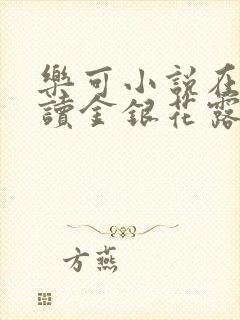 樂可小說在
讀金銀花露
方燕